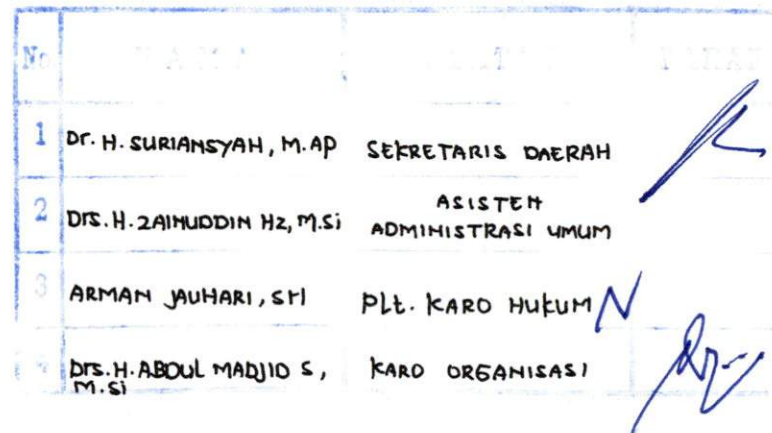 No PARAF
1 Dr. H. SURIANSYAH, M.AP SEKRETARIS DAERAH
2 Drs. H. ZAINUDDIN HZ, M.Si ASISTEN
ADMINISTRASI UMUM
3 ARMAN JAUHARI, SH PLt. KARO HUKUM
Drs. H. ABDUL MADJID S, KARO ORGANISASI
M.Si